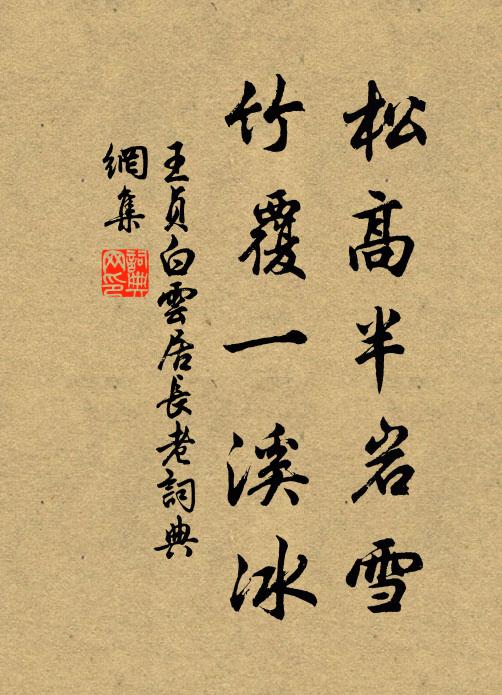 松高半岩雪
竹覆一溪冰
王貞白雲居長老詞典
網集
詞典
网印